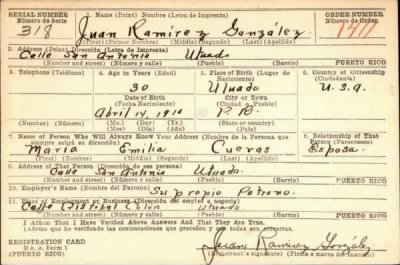 SERIAL NUMBER 1. Name (Print) Nombre (Letra de Imprenta) ORDER NUMBER
Número de Serie Número de Orden
318 Juan Ramirez González 1411
(First) (Primer Nombre) (Middle) (Segundo) (Last) (Apellido)
2. Address (Print) Dirección (Letra de Imprenta)
Calle San Antonio Utuado
(Number and street) (Número y calle) (Barrio) PUERTO RICO
3. Telephone (Teléfono) 4. Age in Years (Edad) 5. Place of Birth (Lugar de Nacimiento) 6. Country of Citizenship (Ciudadanía)
30 Utuado U.S.A.
Date of Birth City or Town
(Fecha Nacimiento) (Ciudad o Pueblo)
April 14, 1910 P.R.
(Mo.) (Day) (Yr.) State or country
(Mes) (Día) (Año) (Estado o país)
7. Name of Person Who Will Always Know Your Address (Nombre de la Persona que siempre sabrá su dirección) 8. Relationship of That Person (Parentesco)
Maria Emilia Cuevas Esposa
(First) (Nombre) (Middle) (Segundo) (Last) (Apellido)
9. Address of That Person (Dirección de esa persona)
Calle San Antonio Utuado
(Number and street) (Número y calle) (Barrio) PUERTO RICO
10. Employer's Name (Nombre del Patrono)
Su propio Patrono
11. Place of Employment or Business (Dirección del empleo o negocio)
Calle Cristobal Colón Utuado
(Number and street) (Número y calle) (Barrio) PUERTO RICO
I Affirm That I Have Verified Above Answers And That They Are True.
(Afirmo que he verificado las contestaciones que preceden y que todas son ciertas.)
REGISTRATION CARD
D.s.s. Form 1
(Puerto Rico)
Juan Ramirez González
(Registrant's signature) (Firma o marca del inscrito)